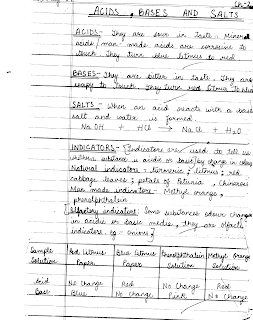 ACIDS, BASES AND SALTS
ACIDS:- They are sour in taste. Mineral
acids/man-made acids are corrosive to
touch. They turn blue litmus to red.
BASES:- They are bitter in taste. They are
soapy to touch. They turn red litmus to blue
SALTS:- When an acid reacts with a base
salt and water is formed.
NaOH + HCl → NaCl + H₂O
INDICATORS:- Indicators are used to tell us
whether substance is acidic or basic by change in colour
Natural indicators - turmeric, litmus, red
cabbage leaves, petals of Petunia,
Man made indicators - Methyl orange,
phenolphthalein
Olfactory indicators: Some substances odour changes
in acidic or basic media, they are olfactory
indicators. eg - onions
Sample Red Litmus Blue Litmus Phenolphthalein Methyl Orange
Solution Paper Paper Solution Solution
Acid No Change Red No Change Red
Base Blue No Change Pink No Change